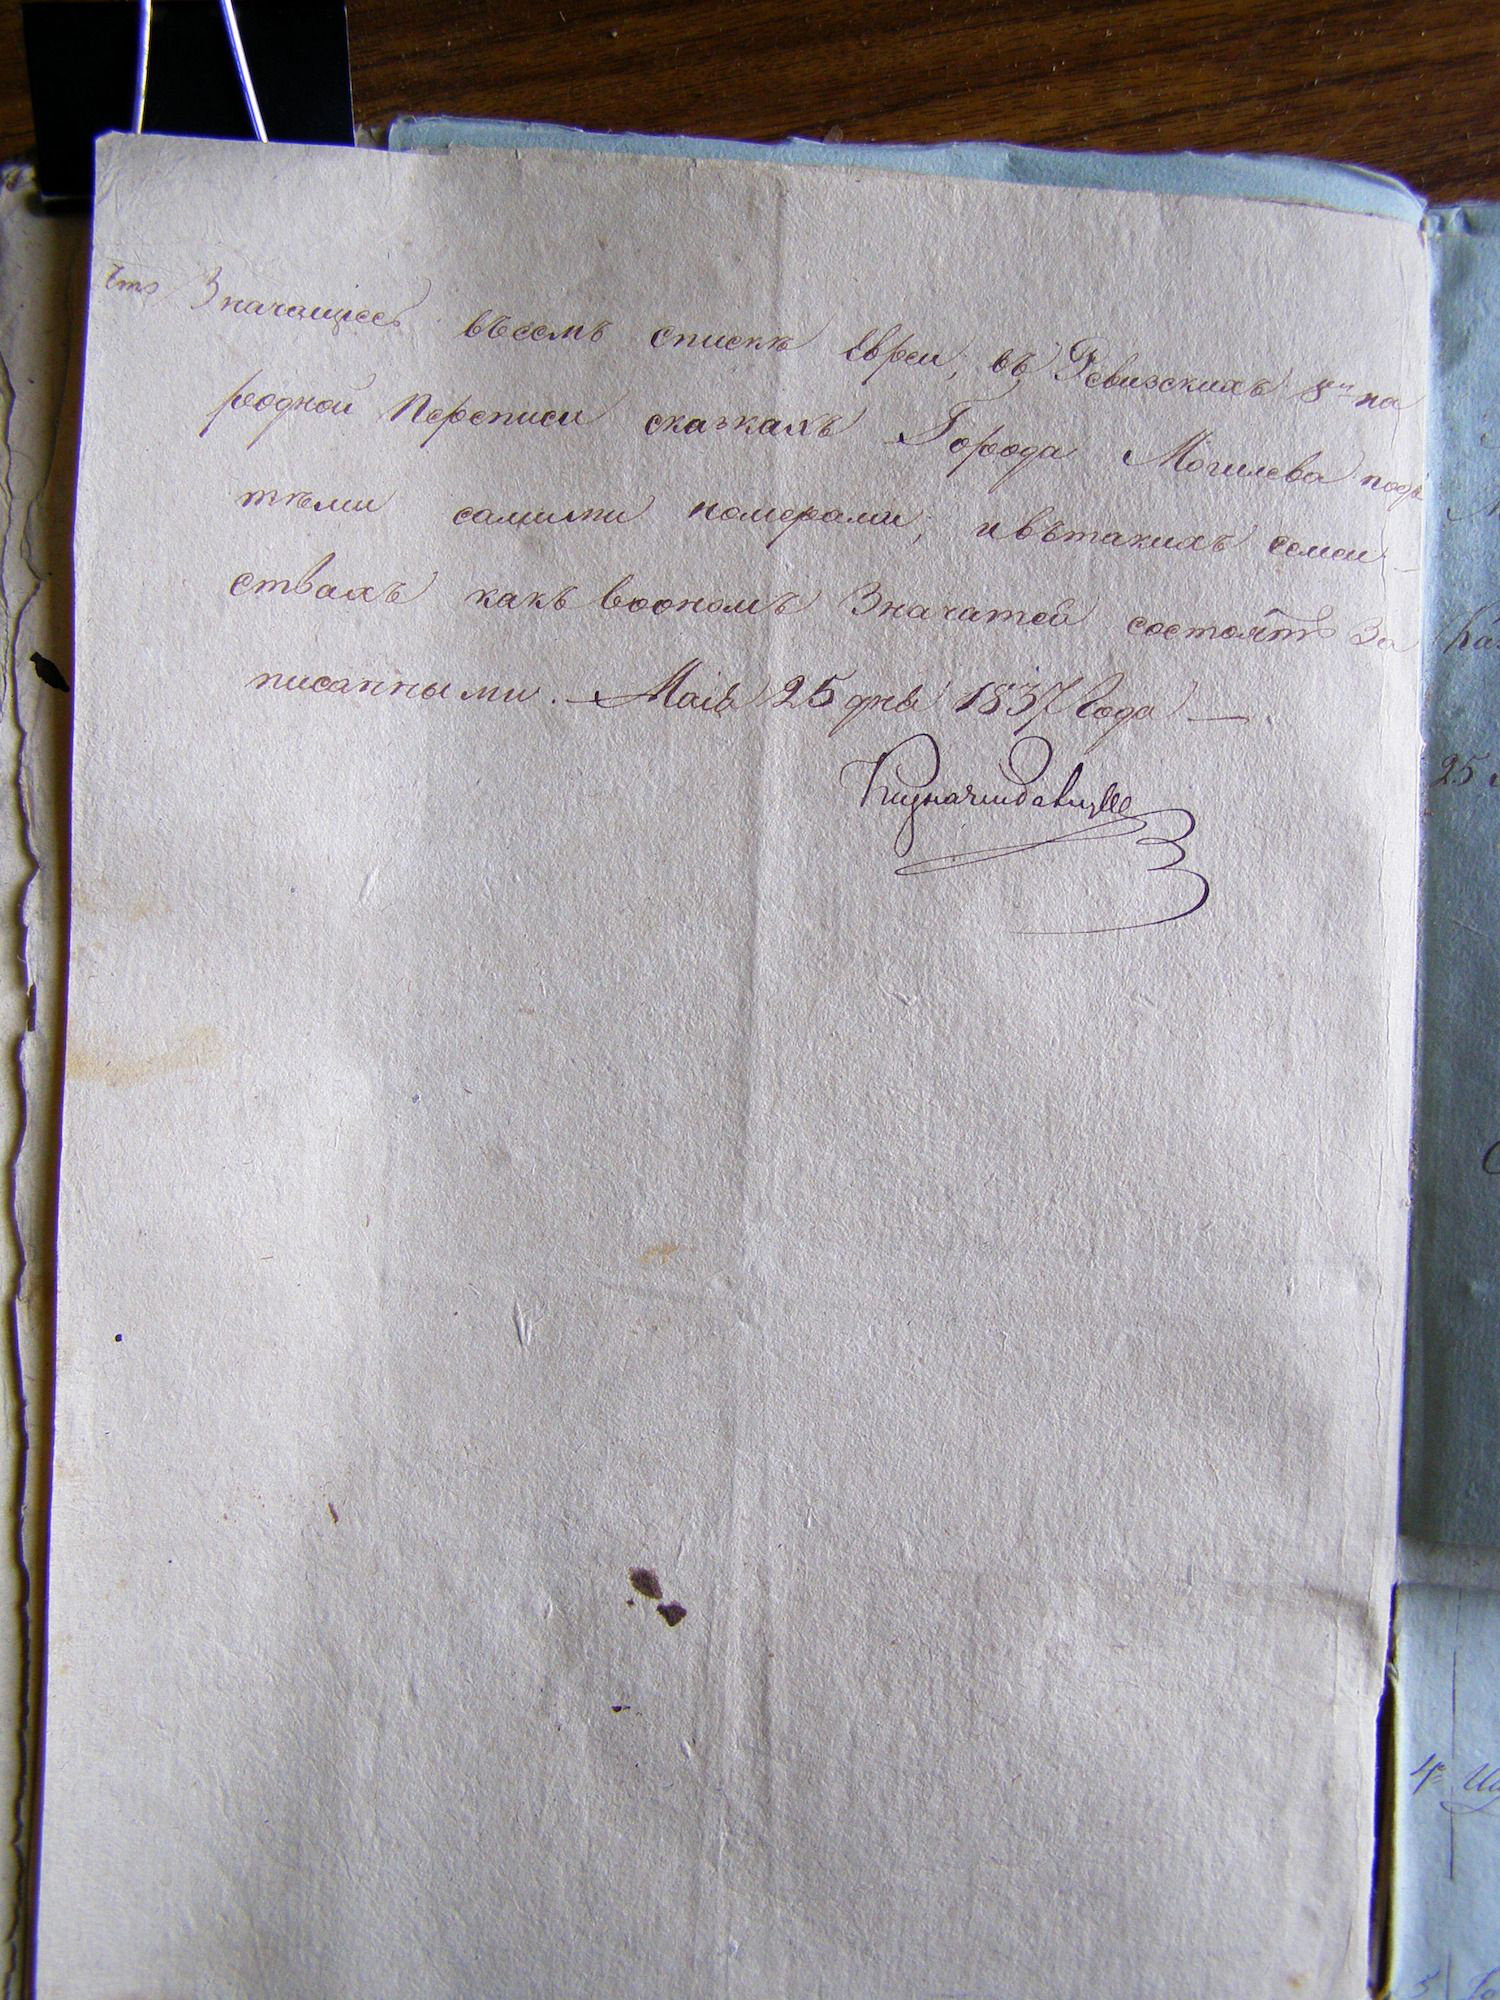 что Значащіеся въсемъ спискѣ Евреи, въ Ревизскихъ 8й на
родной Переписи сказкахъ Города Могилева подъ
тѣми самими номерами, и вътакихъ семей
ствахъ какъ воономъ Значатся состоятъ за
писанными. — Маія 25 дня 1837 года —
25
4е
5